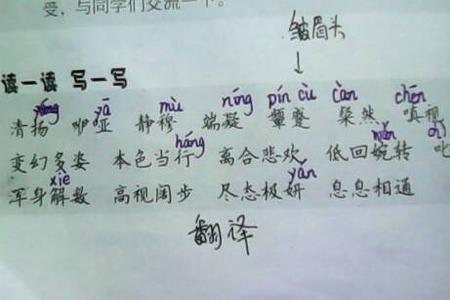 受，与同学们交流一下。
皱眉头
读一读 写一写
yáng yā mù níng pín cù càn chēn
清扬 咿哑 静穆 端凝 颦蹙 粲然 嗔视
háng wǎn
变幻多姿 本色当行 离合悲欢 低回婉转 叱
xiè yán
浑身解数 高视阔步 尽态极妍 息息相通
翻译